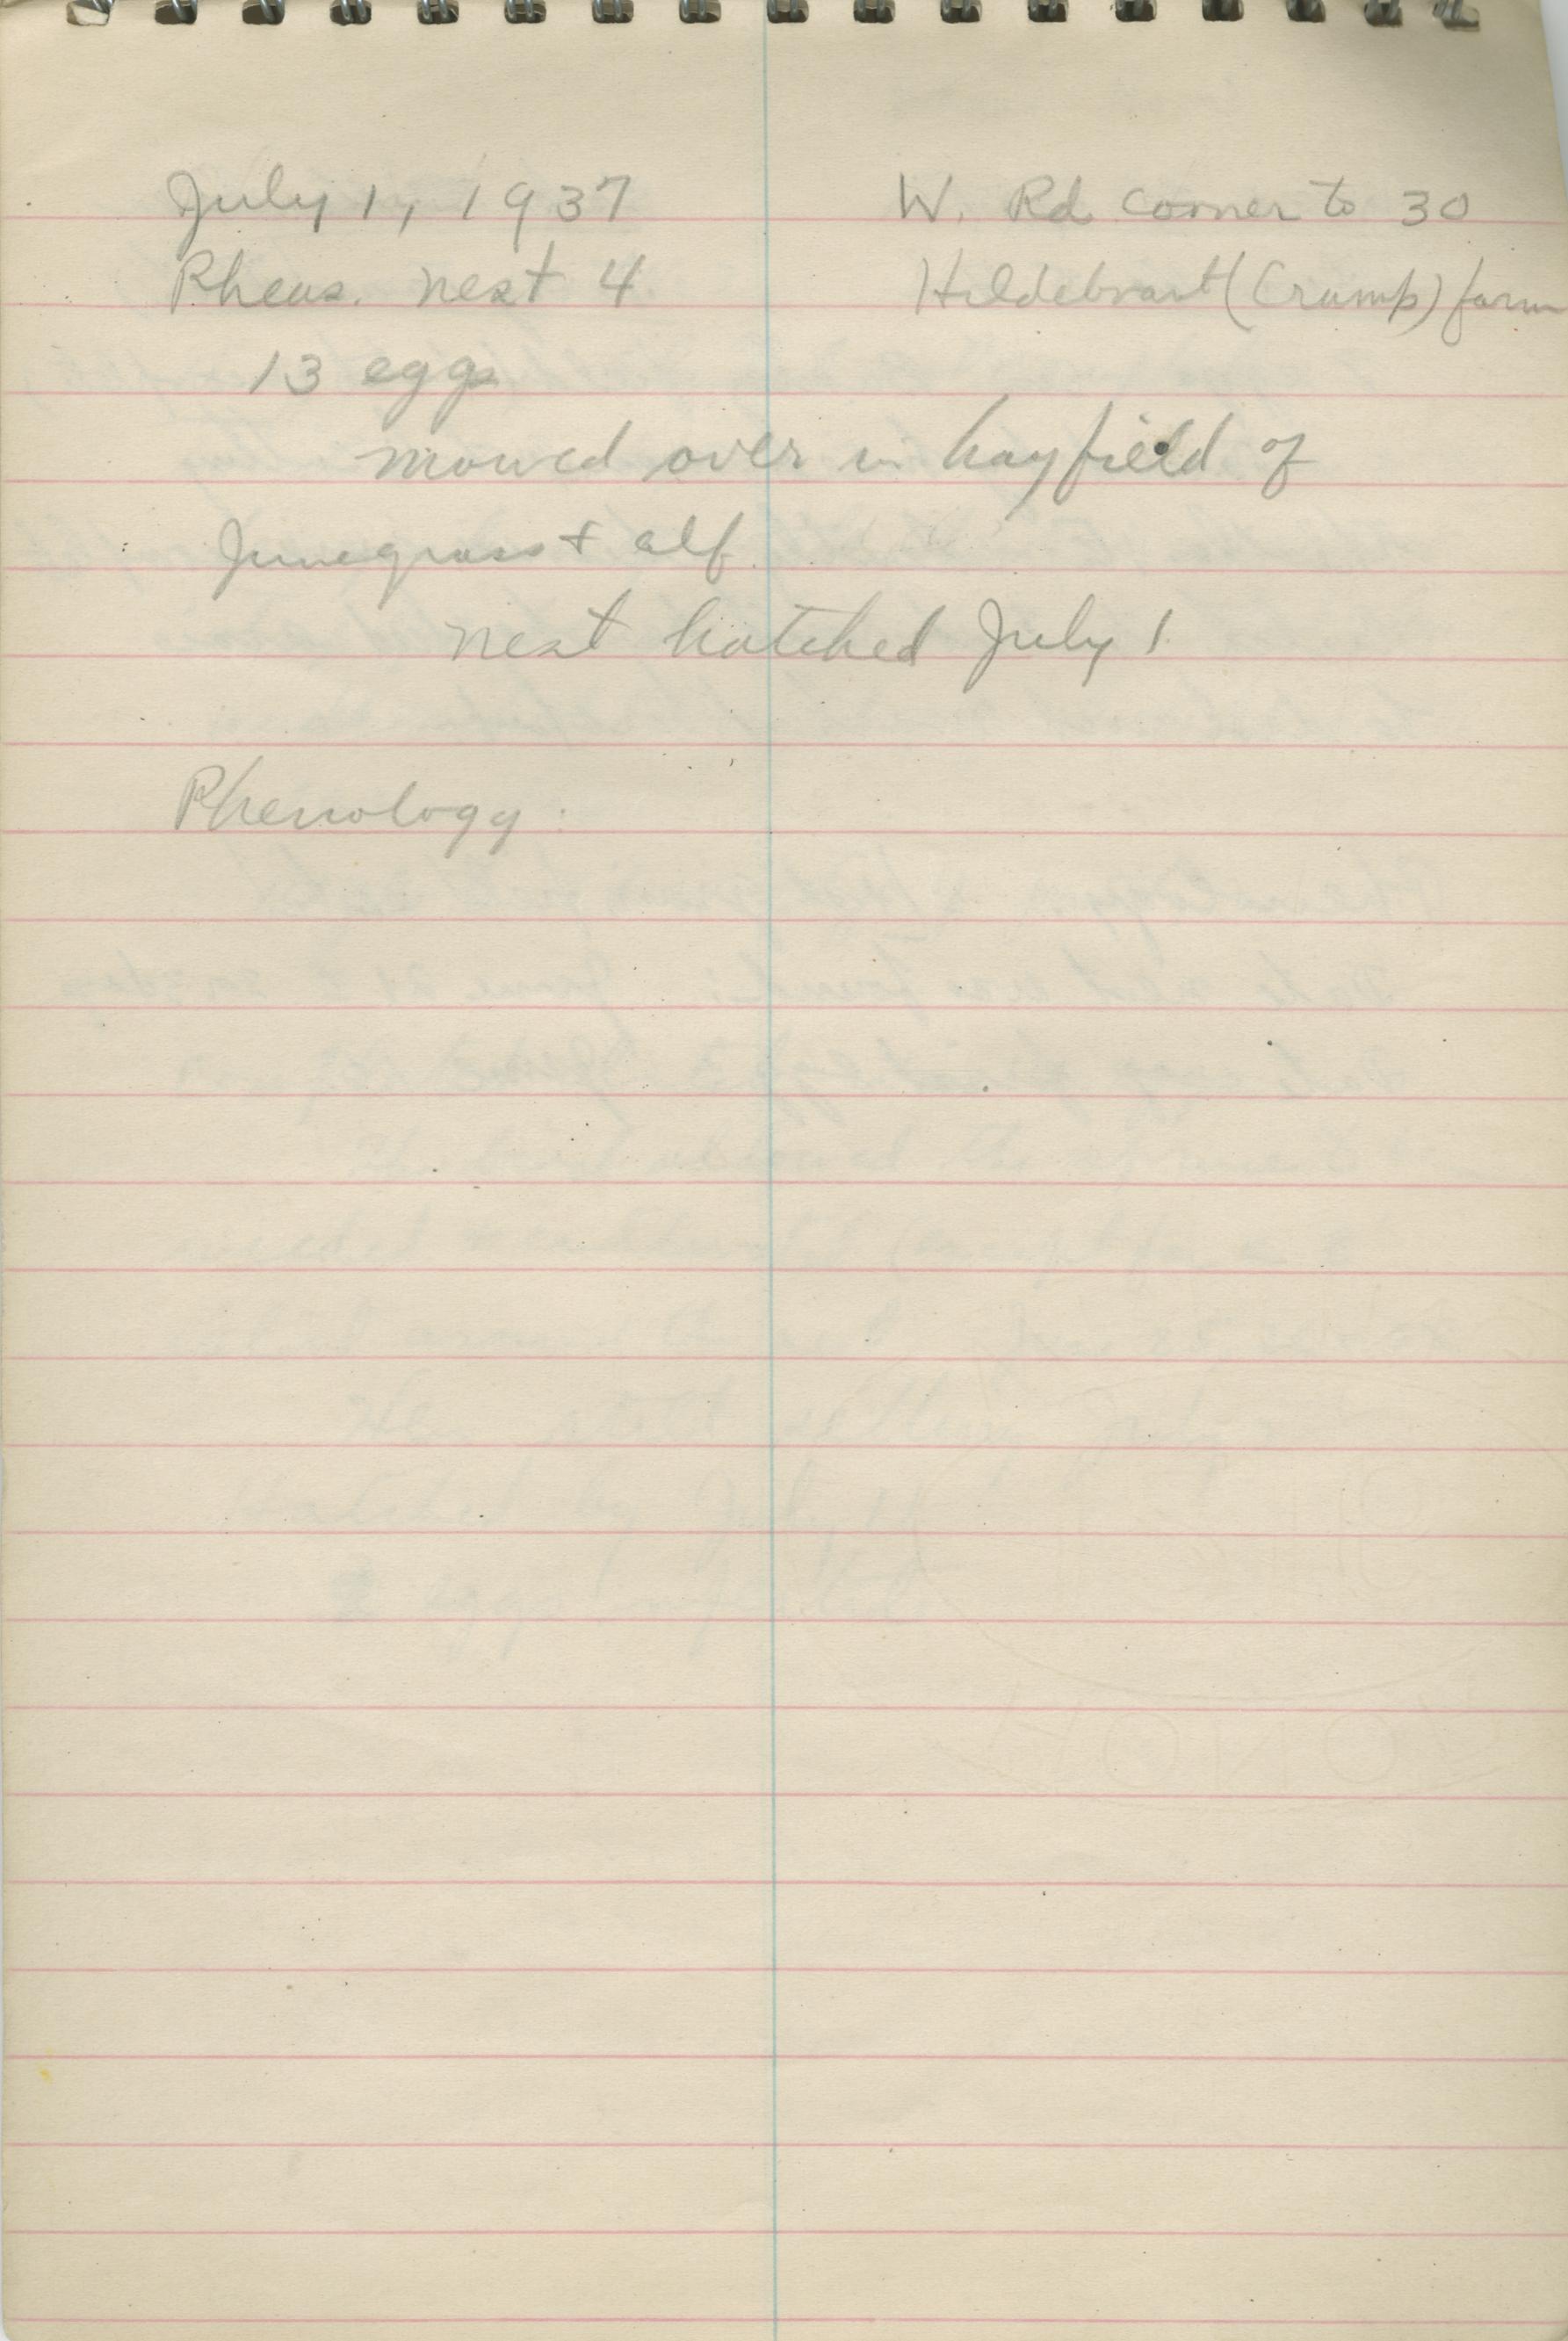 July 1, 1937 W. Rd corner to 30
Pheas. nest 4 Hildebrant (Crump) farm
13 eggs
mowed over in hayfield of
Junegrass + alf.
nest hatched July 1
Phenology: